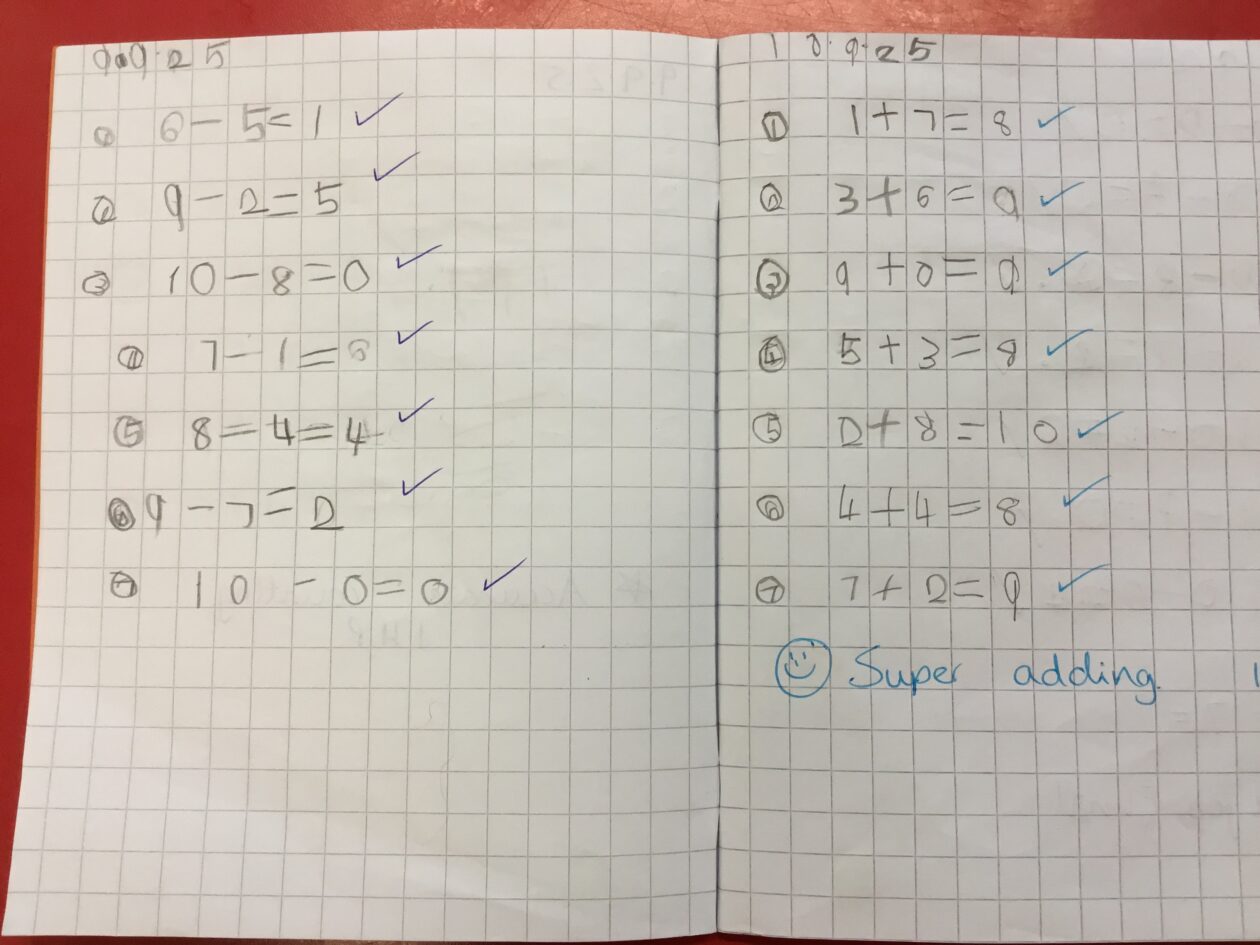 9.9.25
① 6-5=1 ✓
② 9-2=5 ✓
③ 10-8=0 ✓
④ 7-1=6 ✓
⑤ 8=4=4 ✓
⑥ 9-7=2 ✓
⑦ 10-0=0 ✓
10.9.25
① 1+7=8 ✓
② 3+6=9 ✓
③ 9+0=9 ✓
④ 5+3=8 ✓
⑤ 2+8=10 ✓
⑥ 4+4=8 ✓
⑦ 7+2=9 ✓
Super adding.